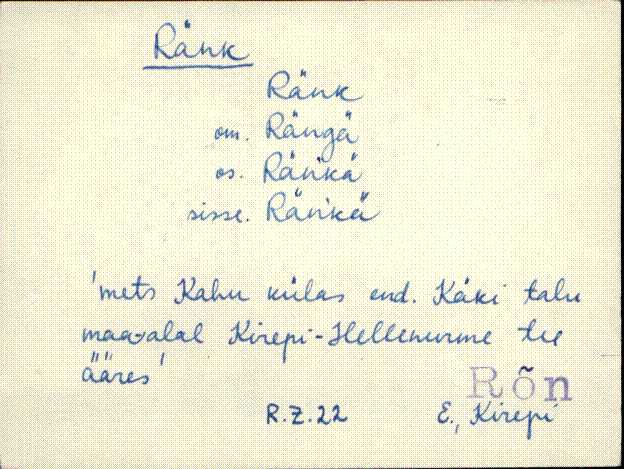 Ränk
Ränk
om. Rängä
os. Ränkä
sisse. Ränkä
'mets Kahu külas end. Käki talu
maa-alal Kirepi-Hellenurme tee
ääres'
Rõn
R.Z.22 E., Kirepi